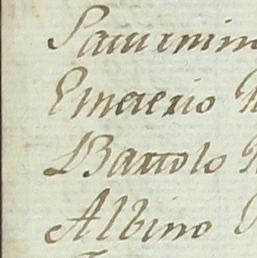 Saturnino
Emeterio
Bartolo
Albino